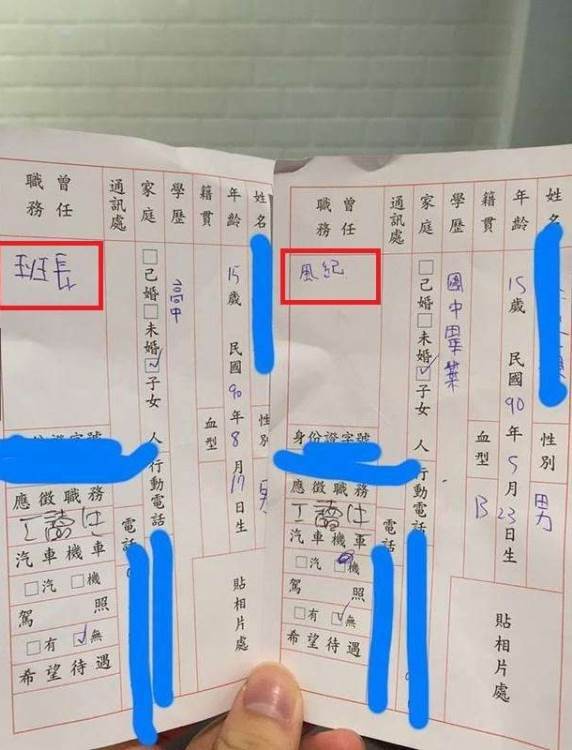 姓名
性別 男
年齡 15歲 民國90年5月23日生
籍貫
血型 B
學歷 國中畢業
家庭 □已婚□未婚☑子女 人
行動電話
通訊處
電話
曾任職務
風紀
身份證字號
應徵職務
工讀
汽車機車
□汽 □機
駕照
□有 ☑無
希望待遇
貼相片處
姓名
年齡 15歲 民國90年8月17日生
籍貫
血型
學歷 高中
家庭 □已婚□未婚☑子女 人
行動電話
通訊處
電話
曾任職務
班長
身份證字號
應徵職務
工讀
汽車機車
□汽 □機
駕照
□有 ☑無
希望待遇
貼相片處